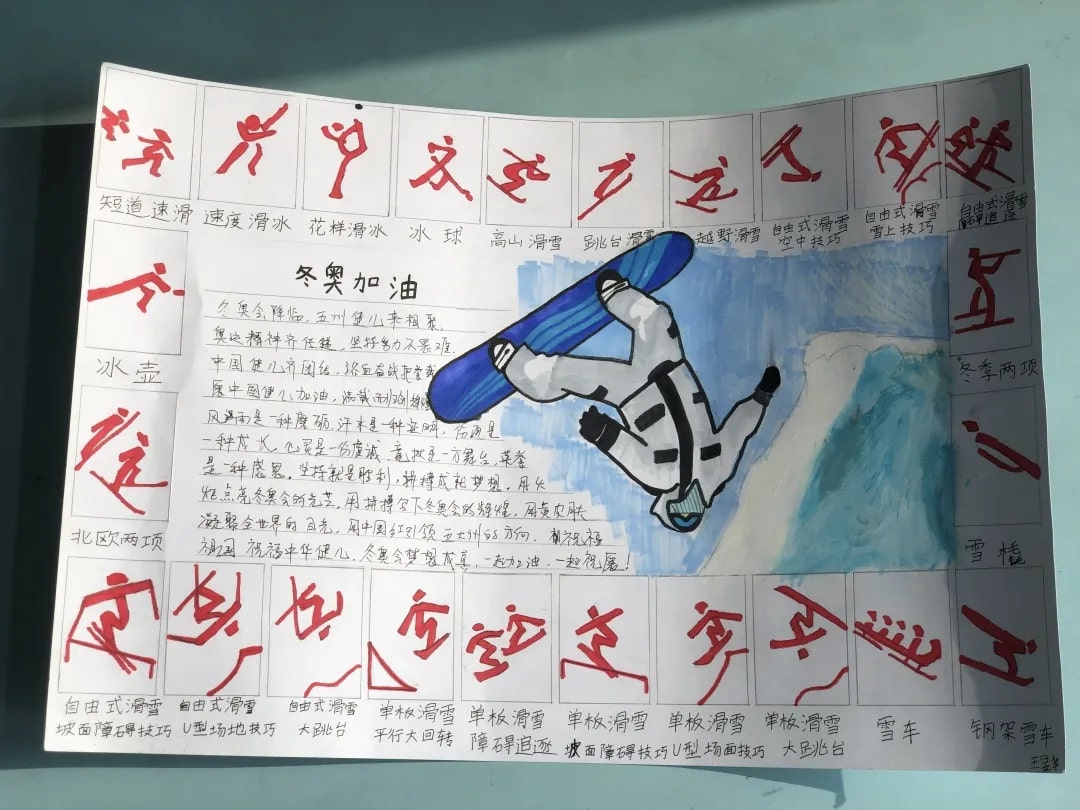 短道速滑
速度滑冰
花样滑冰
冰球
高山滑雪
跳台滑雪
越野滑雪
自由式滑雪
空中技巧
自由式滑雪
雪上技巧
自由式滑雪
障碍追逐
冬奥加油
冬奥会降临,五州健儿来相聚,
奥运精神齐传递,坚持努力不畏难.
中国健儿齐团结,浴血奋战
愿中国健儿加油,
风雨是一种磨砺,汗水是一种
一种成长,飞翼是一份虔诚,竟技是一方舞台,荣誉
是一种感恩.坚持就是胜利,拼搏成就梦想,用火
炬点亮冬奥会的光芒,用拼搏勾下冬奥会的辉煌,用黄皮肤
凝聚全世界的目光,用中国红引领五大州的方向.都祝福
祖国,祝福中华健儿,冬奥会梦想成真,一起加油,一起祝愿!
冰壶
冬季两项
北欧两项
雪橇
自由式滑雪
坡面障碍技巧
自由式滑雪
U型场地技巧
自由式滑雪
大跳台
单板滑雪
平行大回转
单板滑雪
障碍追逐
单板滑雪
坡面障碍技巧
单板滑雪
U型场面技巧
单板滑雪
大跳台
雪车
钢架雪车